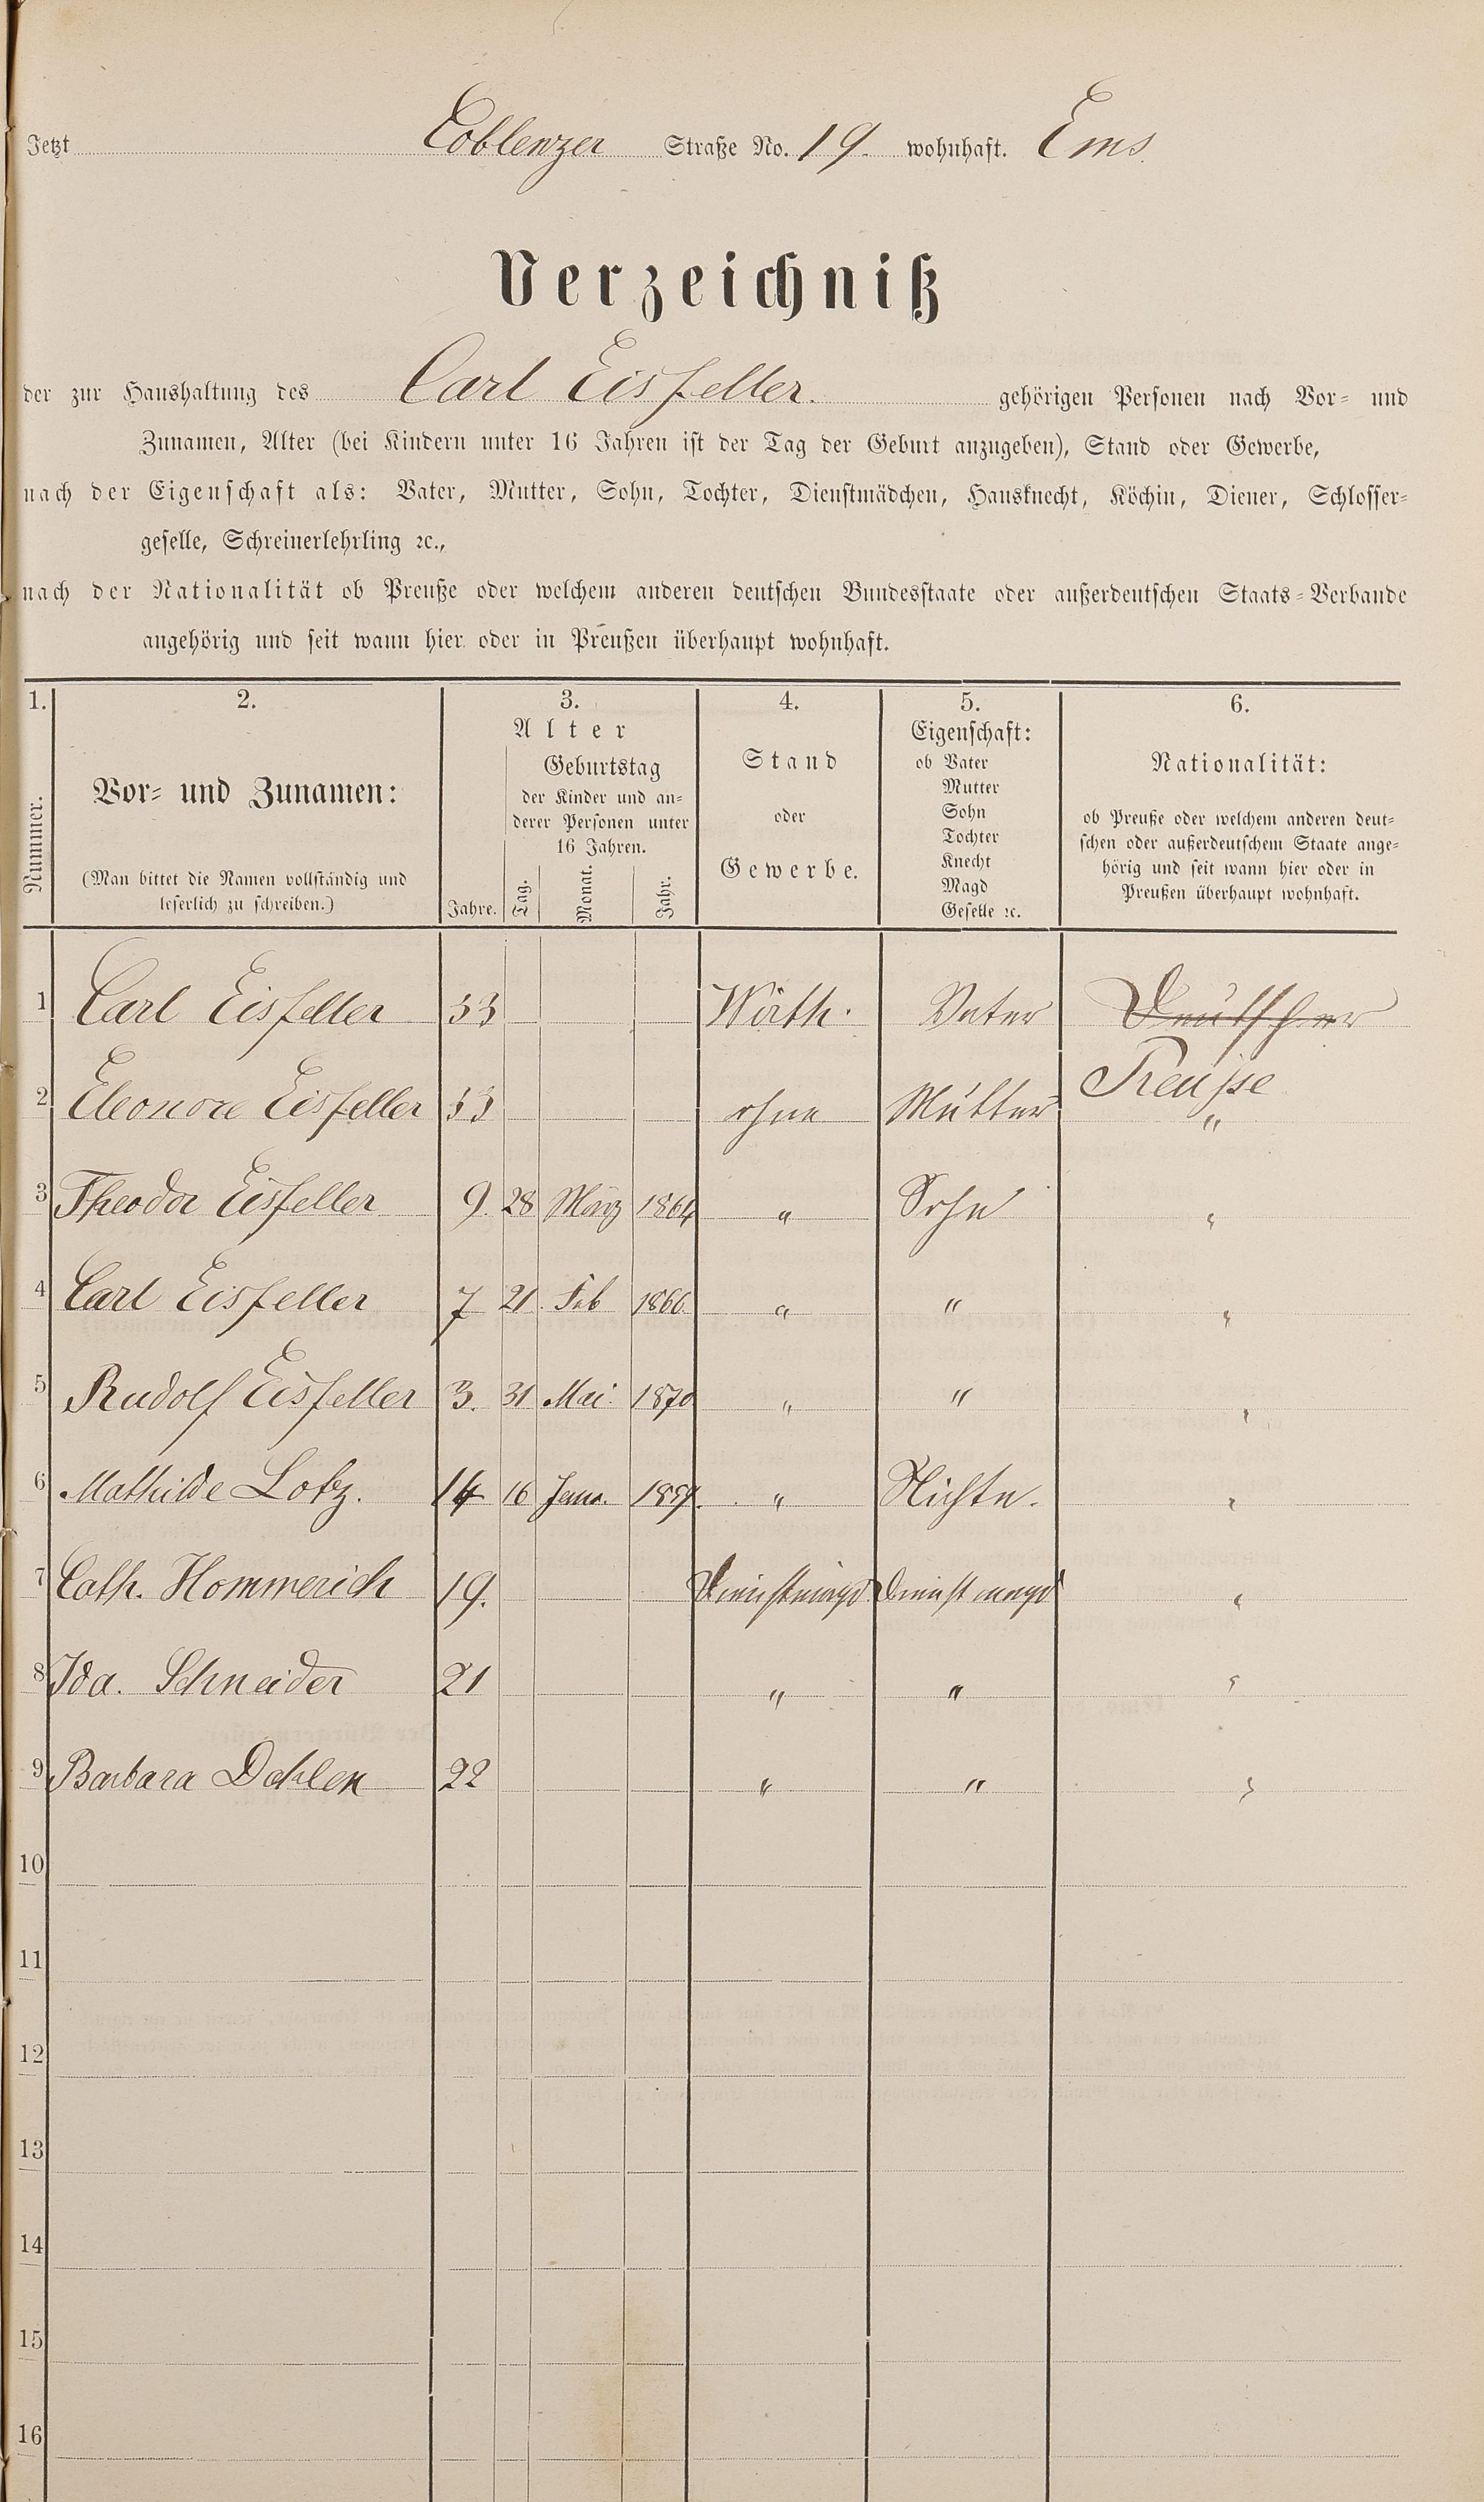 Jetzt Coblenzer Straße No. 19. wohnhaft. Ems.
Verzeichniß
der zur Haushaltung des Carl Eisfeller. gehörigen Personen nach Vor- und
Zunamen, Alter (bei Kindern unter 16 Jahren ist der Tag der Geburt anzugeben), Stand oder Gewerbe,
nach der Eigenschaft als: Vater, Mutter, Sohn, Tochter, Dienstmädchen, Hausknecht, Köchin, Diener, Schlosser-
geselle, Schreinerlehrling ꝛc.,
nach der Nationalität ob Preuße oder welchem anderen deutschen Bundesstaate oder außerdeutschen Staats-Verbande
angehörig und seit wann hier oder in Preußen überhaupt wohnhaft.
1. 2. 3. 4. 5. 6.
Nummer.
Vor- und Zunamen:
(Man bittet die Namen vollständig und
leserlich zu schreiben.)
Alter
Geburtstag
der Kinder und an-
derer Personen unter
16 Jahren.
Jahre. Tag. Monat. Jahr.
Stand
oder
Gewerbe.
Eigenschaft:
ob Vater
Mutter
Sohn
Tochter
Knecht
Magd
Geselle ꝛc.
Nationalität:
ob Preuße oder welchem anderen deut-
schen oder außerdeutschem Staate ange-
hörig und seit wann hier oder in
Preußen überhaupt wohnhaft.
1 Carl Eisfeller 33 Wirth. Vater Deutscher
Preusse
2 Eleonore Eisfeller 33 ohne Mutter "
3 Theodor Eisfeller 9. 28 März 1864 " Sohn "
4 Carl Eisfeller 7 21. Feb 1866. " " "
5 Rudolf Eisfeller 3. 31 Mai. 1870 " " "
6 Mathilde Lotz. 14 16 Janr. " Nichte. "
7 Cath. Hommerich 19. Dienstmagd Dienstmagd "
8 Ida. Schneider 21 " " "
9 Barbara Dahlen 22 " " "
10
11
12
13
14
15
16